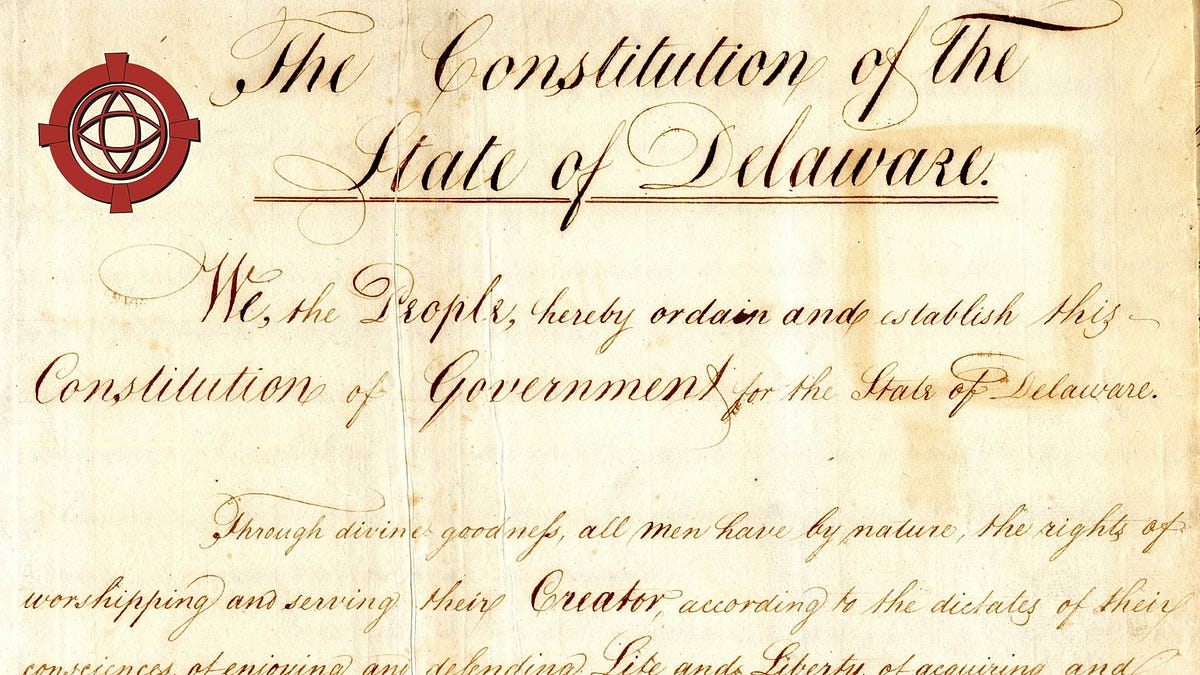 The Constitution of The
State of Delaware.
We, the People, hereby ordain and establish this
Constitution of Government for the State of Delaware.
Through divine goodness, all men have by nature, the rights of
worshipping and serving their Creator, according to the dictates of their
consciences, of enjoying and defending Life and Liberty, of acquiring and